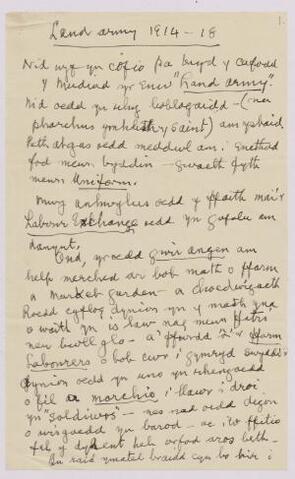 1.
Land army 1914 – 18
Nid wyf yn cofio pa bryd y cafodd
y Mudiad yr Enw "Land army".
Nid oedd yn uchel boblogaidd – (neu
pharchus ymhlith y Saint) am ysbaid.
Peth atgas oedd meddwl am i Eneth
fod mewn byddin – gwaeth fyth
mewn Uniform.
oedd y ffaith mai'r
Labour Exchange oedd yn gofalu am
danynt.
Ond, yr oedd gwir angen am
help merched ar bob math o fferm
a Market garden – a choedwigaeth
Roedd cyflog dynion yn y math yma
o waith yn is llaw nag mewn ffatri
neu bwll glo – a ffwrdd a'r farm
Labourers o bob cwr i Gymryd swyddi
dynion oedd yn uno yn rhengoedd
o fil a marchio i lawr i droi
yn "Soldiwrs" – nes nad oedd digon
o wisgoedd yn barod – ac i'w ffitio
fel y dylent heb orfod aros beth.
Bu raid ymatal braidd cyn bo hir i